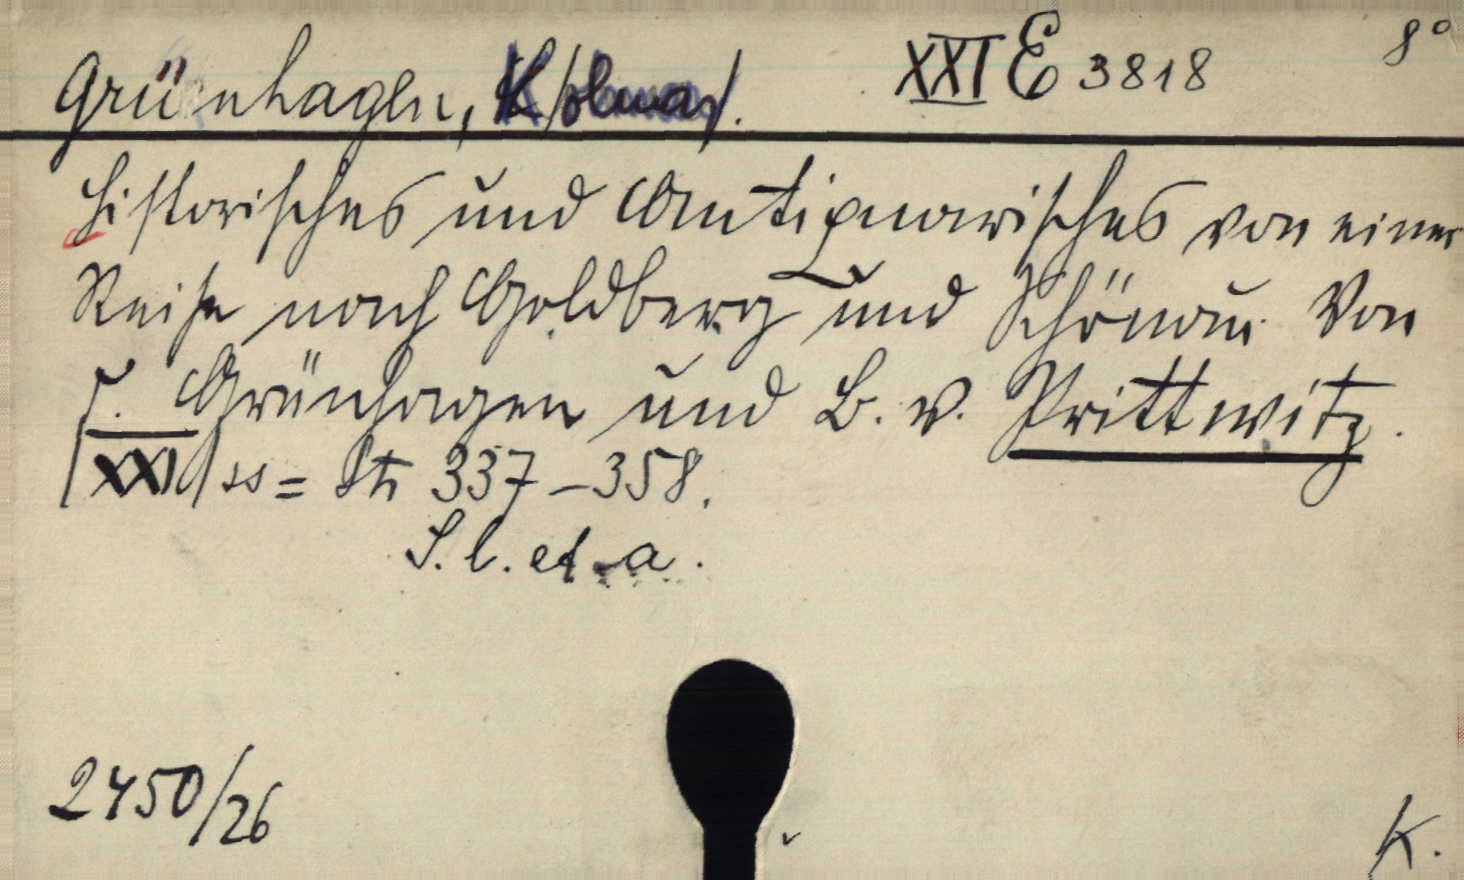 Grünhagen, K/olmar/. XXI E 3818 8°
Historisches und Antiquarisches von einer
Reise nach Goldberg und Schönau. Von
C. Grünhagen und B. v. Prittwitz.
/XXI/ ss = St 337–358.
S. l. et a.
2450/26
K.